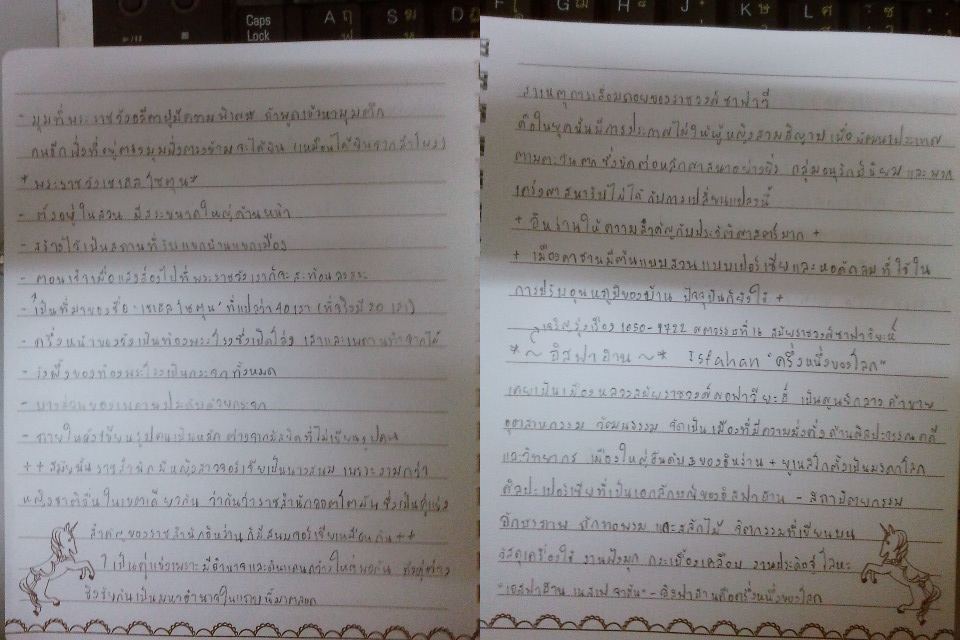 Caps Lock
A ฤ
S ฆ
D
G
H
J
K ษ
L ศ
- มุมที่พระราชวังอลีคาปูมีความพิเศษ ถ้าพูดเข้าหามุมตึก
คนอีกฝั่งที่อยู่ตรงมุมฝั่งตรงข้ามจะได้ยิน (เหมือนได้ยินจากลำโพง)
*พระราชวังเชเฮลโซตุน*
- ตั้งอยู่ในสวน มีสระขนาดใหญ่ด้านหน้า
- สร้างไว้เป็นสถานที่รับแขกบ้านแขกเมือง
- ตอนเช้าเมื่อแสงส่องไปที่พระราชวังเงาก็จะสะท้อนลงสระ
- เป็นที่มาของชื่อ "เชเฮลโซตุน" ที่แปลว่า 40 เสา (ที่จริงมี 20 เสา)
- ครึ่งหน้าของวังเป็นท้องพระโรงซึ่งเปิดโล่ง เสาและเพดานทำจากไม้
- ผนังของท้องพระโรงเป็นกระจกทั้งหมด
- บางส่วนของเพดานประดับด้วยกระจก
- ภายในวังเขียนรูปคนเป็นหลัก ต่างจากมัสยิดที่ไม่เขียนรูปคน
++ สมัยนั้นราชสำนักมีหญิงสาวจอร์เจียเป็นนางสนม เพราะงามกว่า
หญิงชาติอื่นในเขตเดียวกัน ว่ากันว่าราชสำนักออตโตมันซึ่งเป็นคู่แข่ง
สำคัญของราชสำนักอิหร่านก็มีสนมจอร์เจียเหมือนกัน ++
เป็นคู่แข่งเพราะมีอำนาจและดินแดนกว้างใหญ่พอกัน ทั้งคู่ต่าง
ชิงชัยกันเป็นมหาอำนาจในแถบนี้มาตลอด
สาเหตุการเสื่อมถอยของราชวงศ์ซาฟาวี
คือในยุคนั้นมีการประกาศไม่ให้ผู้หญิงสวมฮิญาบ เพื่อพัฒนาประเทศ
ตามตะวันตก ซึ่งขัดต่อหลักศาสนาอย่างยิ่ง กลุ่มอนุรักษ์นิยมและพวก
เคร่งศาสนารับไม่ได้กับการเปลี่ยนแปลงนี้
+ อิหร่านให้ความสำคัญกับประวัติศาสตร์มาก +
+ เมืองคาชานมีต้นแบบสวนแบบเปอร์เซียและหอดักลมที่ใช้ใน
การปรับอุณหภูมิของบ้าน ปัจจุบันก็ยังใช้ +
เจริญรุ่งเรือง 1050-1722 ศตวรรษที่ 16 สมัยราชวงศ์ซาฟาวิยะห์
*~ อิสฟาฮาน ~* Isfahan "ครึ่งหนึ่งของโลก"
เคยเป็นเมืองหลวงสมัยราชวงศ์ซอฟาวียะฮ์ เป็นศูนย์กลางค้าขาย
อุตสาหกรรม วัฒนธรรม จัดเป็นเมืองที่มีความมั่งคั่งด้านศิลปะวรรณคดี
และวิทยาการ เมืองใหญ่อันดับ 3 ของอิหร่าน + ยูเนสโกตั้งเป็นมรดกโลก
ศิลปะเปอร์เซียที่เป็นเอกลักษณ์ของอิสฟาฮาน - สถาปัตยกรรม
จิตรภาพ ถักทอพรม และสลักไม้ จิตกรรมที่เขียนบน
วัสดุเครื่องใช้ งานฝังมุก กระเบื้องเคลือบ งานประดิษฐ์โลหะ
"เอสฟาฮาน เนสเฟ จาฮัน" - อิสฟาฮานคือครึ่งหนึ่งของโลก